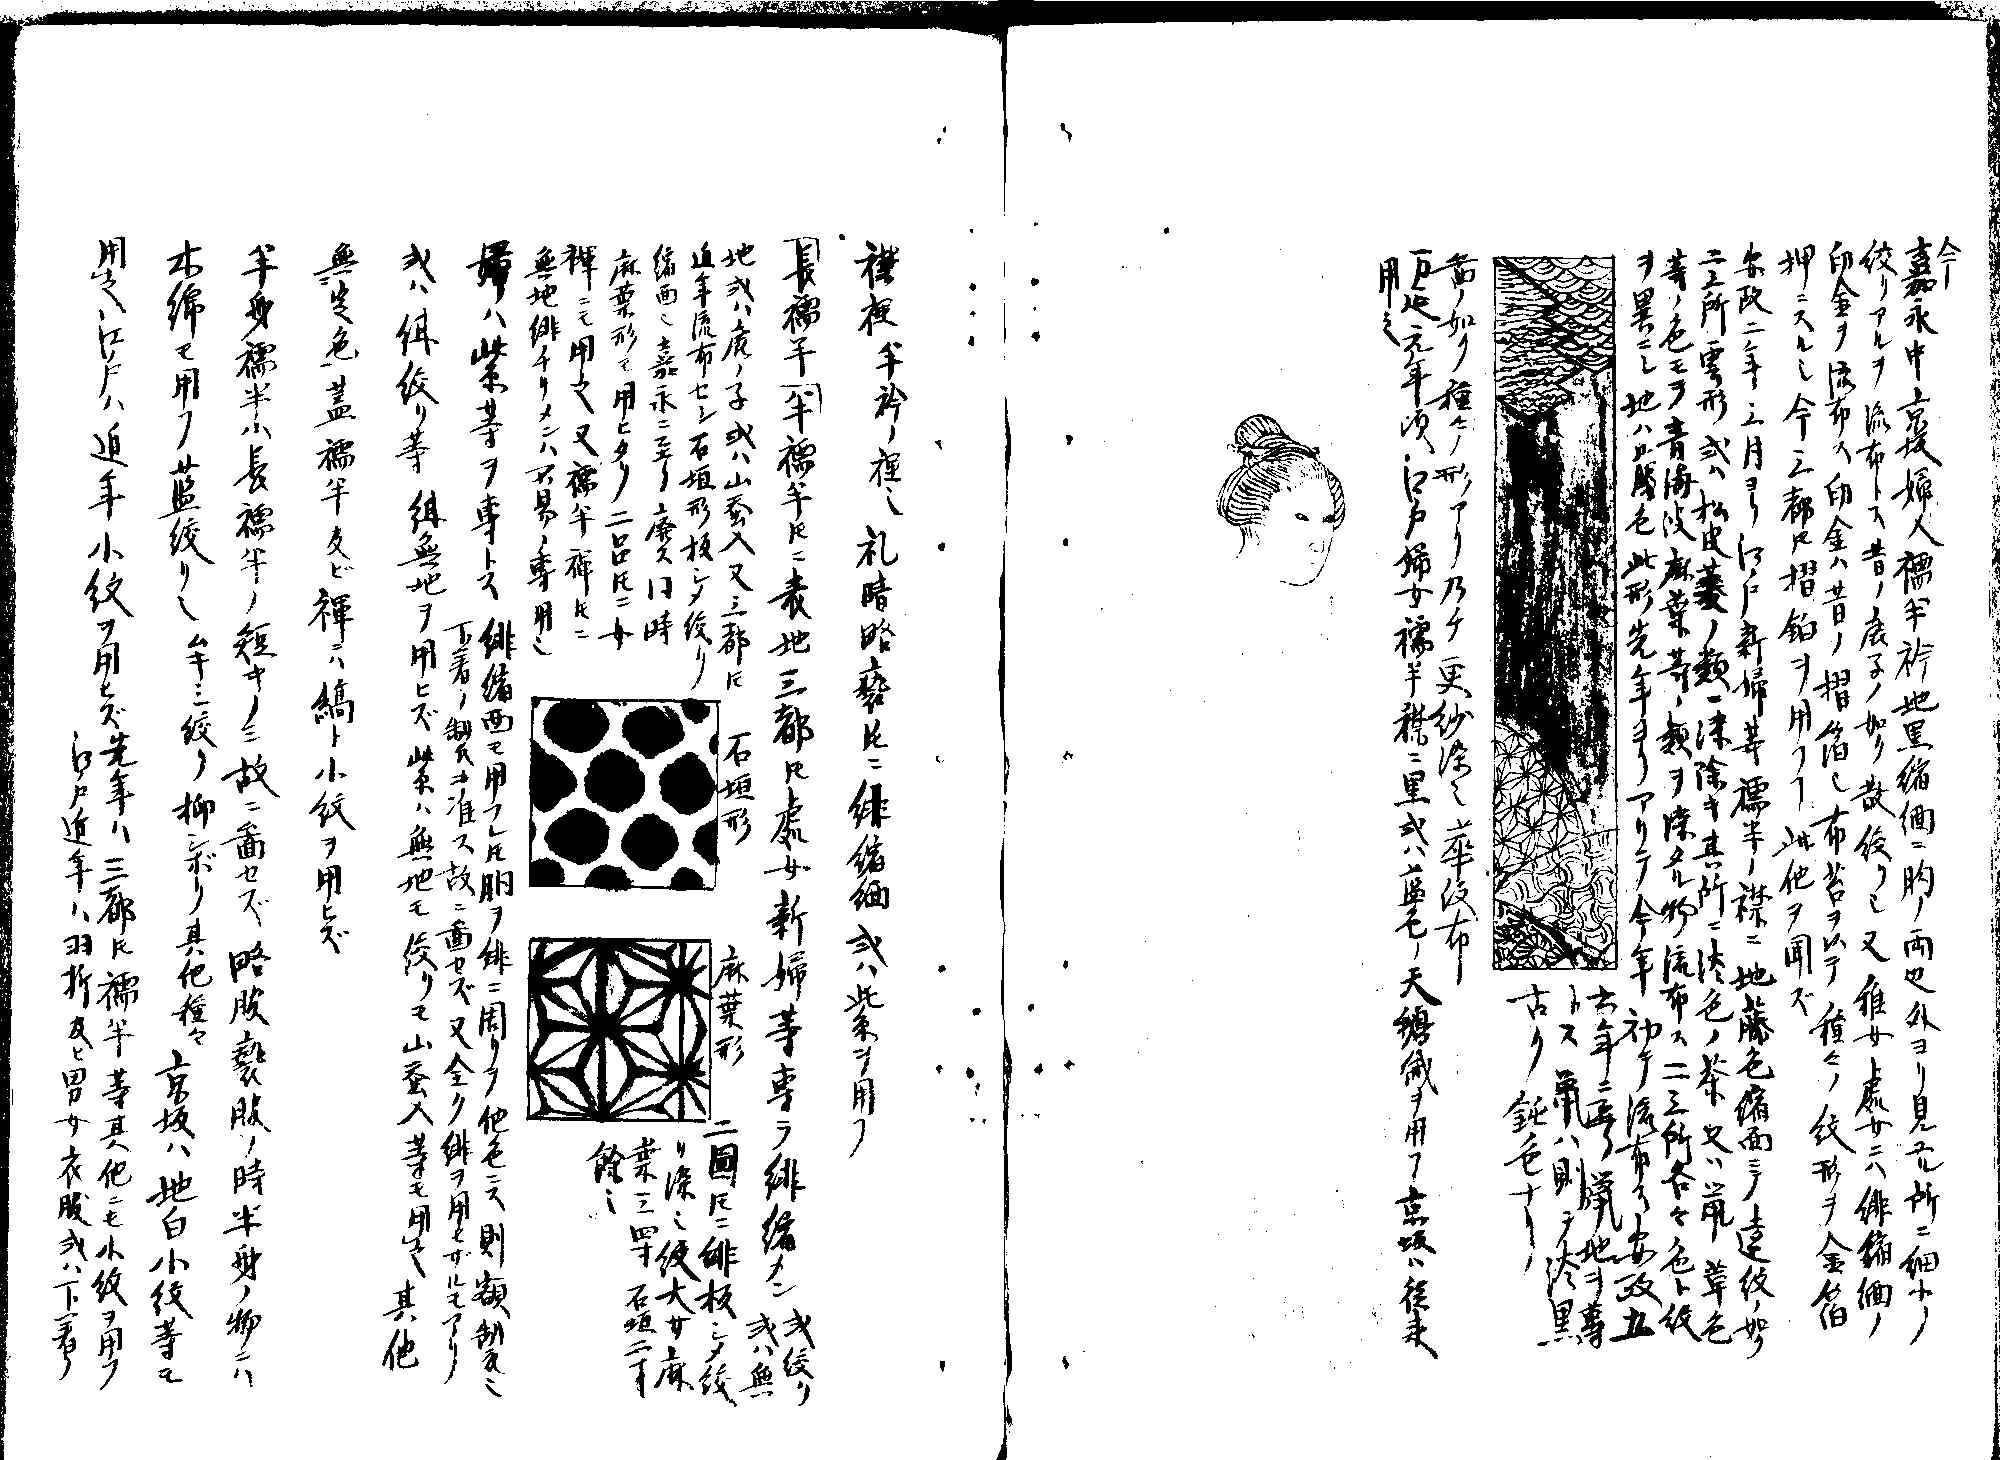 今ー
嘉永中京坂婦人襦半衿地黒縮緬ニ胸ノ両也外ヨリ見ユル所ニ細小ノ
絞リアルヲ流布トス昔ノ鹿子ノ如ク散絞リ也又雅女ト處女ニハ緋縮緬ノ
印金ヲ流布ス印金ハ昔ノ摺箔也布苔ヲ以テ種々ノ紋形ヲ金箔
押ニスル也今三都トモ摺箔ヲ用フ此他ヲ聞ズ
安政二年三月ヨリ江戸新婦等襦半ノ襟ニ地藤色縮面ニテ遠紋ノ如ク
二三所雲形或ハ松皮菱ノ類ニ染除キ其所ニ淡色ノ茶又ハ鼠草色
等ノ色モヲ青海波麻葉等ノ類ヲ染タル物流布ス二三所各々色ト紋
ヲ異ニシ地ハ必藤色此形先年ヨリアリテ今年初テ流布スル安政五
六年ニ至リ鼠地ヲ専
トス鼠ハ則チ淡黒
古ク鈍色ナリ
図ノ如ク種々ノ形アリ乃チ更紗染也華紋布
万延元年頃江戸婦女襦半襟ニ黒或ハ藍色ノ天鵝絨ヲ用フ京坂ハ従来
用之
襟裡半衿ノ裡也礼晴略褻トモニ緋縮緬或ハ紫等ヲ用フ
長襦半半襦半トモニ表地三都トモ處女新婦等専ラ緋縮メン或絞リ
或ハ無
地或ハ鹿ノ子或ハ山蚕入又三都トモ
近年流布セシ石垣形板シメ絞リ
縮面也嘉永ニ至リ廃ス同時
麻葉形モ用ヒタリ二品トモニ女
褌ニモ用之又襦半褌トモニ
無地緋チリメンハ不易ノ専用也
石垣形
麻葉形
二圖トモニ緋板シメ絞
リ染也絞大サ麻
葉三四寸石垣二寸
餘也
婦ハ紫等ヲ専トス緋縮面モ用フレトモ胴ヲ緋ニ周リヲ他色ニス則額制度也
下着ノ製ニ准ス故ニ畫セズ又全ク緋ヲ用ヒザルモアリ
或ハ絳絞リ等絳無地ヲ用ヒズ紫ハ無地モ絞リモ山蚕入等モ用之其他
無定色蓋襦半及ビ褌ニハ縞ト小紋ヲ用ヒズ
半身襦半ハ長襦半ノ短キノミ故ニ畫セズ略服褻服ノ時半身ノ物ニハ
木綿モ用フ藍絞リ也三絞リ柳シボリ其他種々京坂ハ地白小紋等モ
用之江戸ハ近年小紋ヲ用ヒズ先年ハ三都トモ襦半等其他ニモ小紋ヲ用フ
江戸近年ハ羽折及ヒ男女衣服或ハ下着ノ